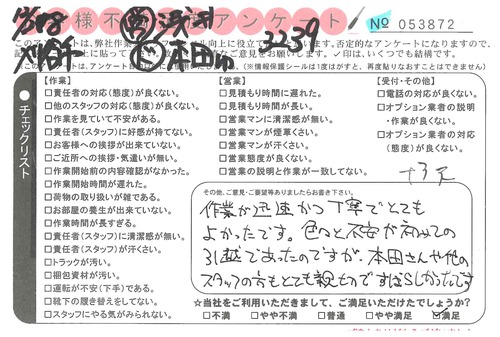 様 不 アンケート
№ 053872
3239
本田
このアンケートは、弊社作業 向上に役立て 否定的なアンケートになりますので、
ご意見をお願いします。☑印は、いくつでも結構です。
(※情報保護シールは1度はがすと、再度貼りなおすことはできません)
チェックリスト
【作業】
□責任者の対応(態度)が良くない。
□他のスタッフの対応(態度)が良くない。
□作業を見ていて不安がある。
□責任者(スタッフ)に好感が持てない。
□お客様への挨拶が出来ていない。
□ご近所への挨拶・気遣いが無い。
□作業開始前の内容確認がなかった。
□作業開始時間が遅れた。
□荷物の取り扱いが雑である。
□お部屋の養生が出来ていない。
□作業時間が長すぎる。
□責任者(スタッフ)に清潔感が無い。
□責任者(スタッフ)が汗くさい。
□トラックが汚い。
□梱包資材が汚い。
□運転が不安(下手)である。
□靴下の履き替えをしてない。
□スタッフにやる気がみられない。
【営業】
□見積もり時間に遅れた。
□見積もり時間が長い。
□営業マンに清潔感が無い。
□営業マンが煙草くさい。
□営業マンが汗くさい。
□営業態度が良くない。
□営業の説明と作業が一致してない。
【受付・その他】
□電話の対応が良くない。
□オプション業者の説明
・作業が良くない。
□オプション業者の対応
(態度)が良くない。
その他、ご意見・ご要望等ありましたらお書き下さい。
作業が迅速かつ丁寧でとても
よかったです。色々と不安が初めての
引越であったのですが、本田さんや他の
スタッフの方もとても親切ですばらしかったです
☆当社をご利用いただきまして、ご満足いただけたでしょうか?
□不満 □やや不満 □普通 □やや満足 ☑満足